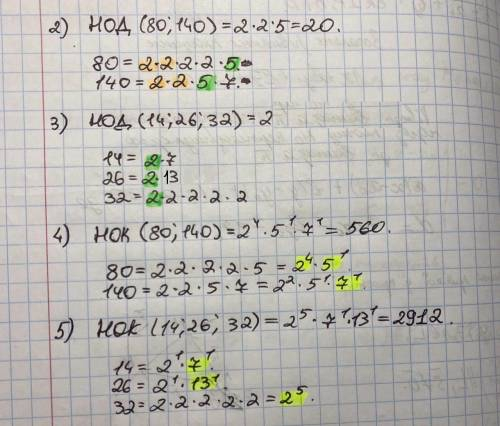 2) НОД (80; 140) = 2·2·5=20.
80 = 2·2·2·2·5.
140 = 2·2·5·7.
3) НОД (14; 26; 32) = 2
14 = 2·7
26 = 2·13
32 = 2·2·2·2·2
4) НОК (80; 140) = 2⁴·5¹·7¹ = 560.
80 = 2·2·2·2·5 = 2⁴·5¹
140 = 2·2·5·7 = 2²·5¹·7¹.
5) НОК (14; 26; 32) = 2⁵·7¹·13¹ = 2912.
14 = 2¹·7¹.
26 = 2¹·13¹.
32 = 2·2·2·2·2 = 2⁵.